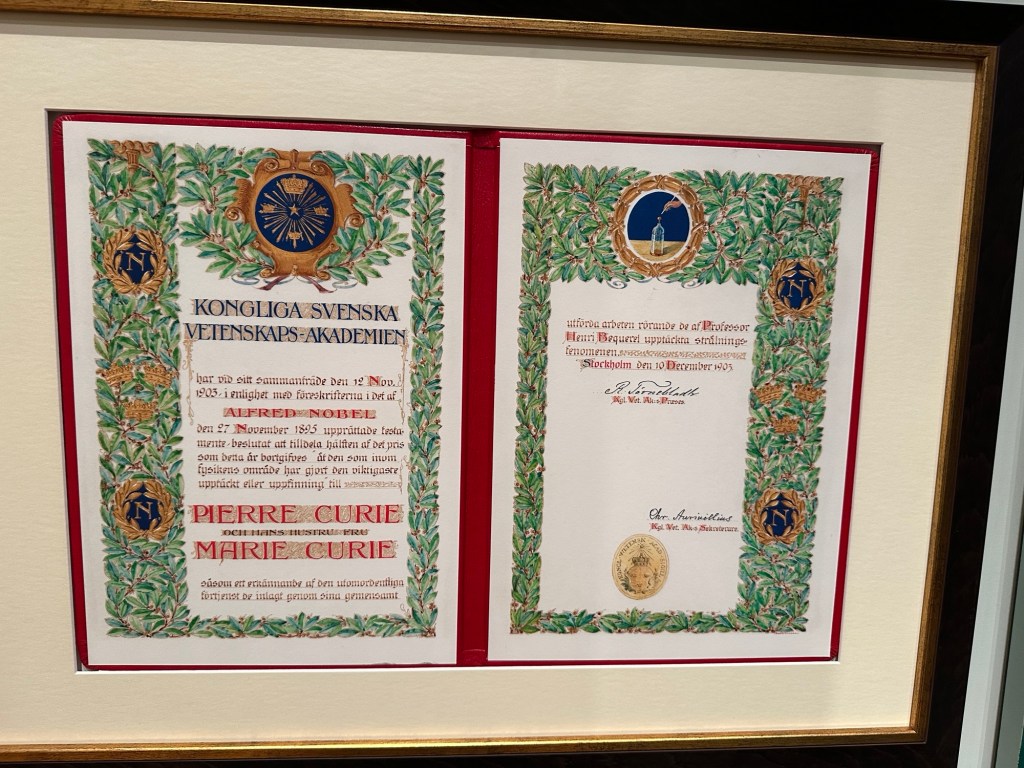 KONGLIGA SVENSKA
VETENSKAPS-AKADEMIEN
har vid sitt sammanträde den 12 Nov.
1903, i enlighet med föreskrifterna i det af
ALFRED NOBEL
den 27 November 1895 upprättade testa-
mente beslutat att tilldela hälften af det pris
som detta år bortgifves åt den som inom
fysikens område har gjort den viktigaste
upptäckt eller uppfinning till
PIERRE CURIE
OCH HANS HUSTRU FRU
MARIE CURIE
såsom ett erkännande af den utomordentliga
förtjenst de inlagt genom sina gemensamt
N
N
utförda arbeten rörande de af Professor
Henri Bequerel upptäckta strålnings-
fenomenen.
Stockholm den 10 December 1903.
R. Törnebladh
Kgl. Vet. Ak:s Præses.
Chr. Aurivillius
Kgl. Vet. Ak:s Sekreterare.
N
N